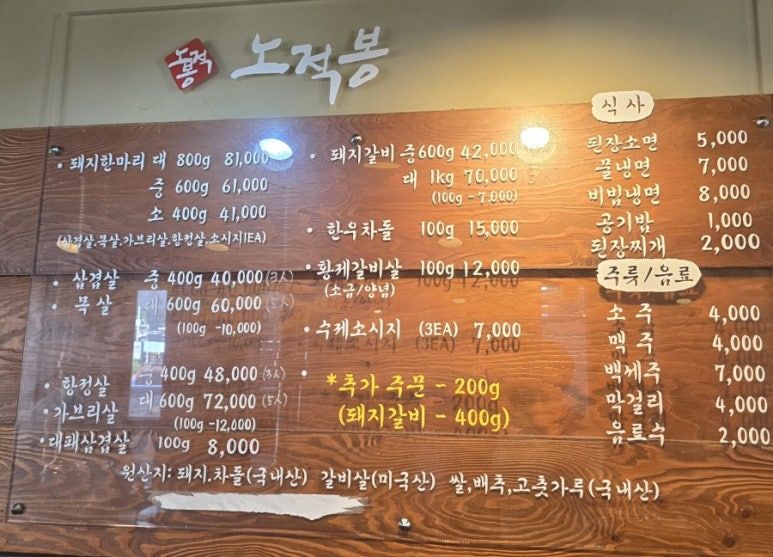 노적봉
노적봉
돼지한마리 대 800g 81,000
중 600g 61,000
소 400g 41,000
(삼겹살,목살,가브리살,항정살,소시지1EA)
삼겹살 중 400g 40,000 (3人)
목살 대 600g 60,000 (5人)
(100g -10,000)
항정살 중 400g 48,000 (3人)
가브리살 대 600g 72,000 (5人)
(100g -12,000)
대패삼겹살 100g 8,000
돼지갈비 중 600g 42,000
대 1kg 70,000
(100g -7,000)
한우차돌 100g 15,000
황제갈비살 100g 12,000
(소금/양념)
수제소시지 (3EA) 7,000
*추가 주문 - 200g
(돼지갈비 - 400g)
식사
된장소면 5,000
물냉면 7,000
비빔냉면 8,000
공기밥 1,000
된장찌개 2,000
주류/음료
소주 4,000
맥주 4,000
백세주 7,000
막걸리 4,000
음료수 2,000
원산지: 돼지.차돌(국내산) 갈비살(미국산) 쌀,배추,고춧가루(국내산)